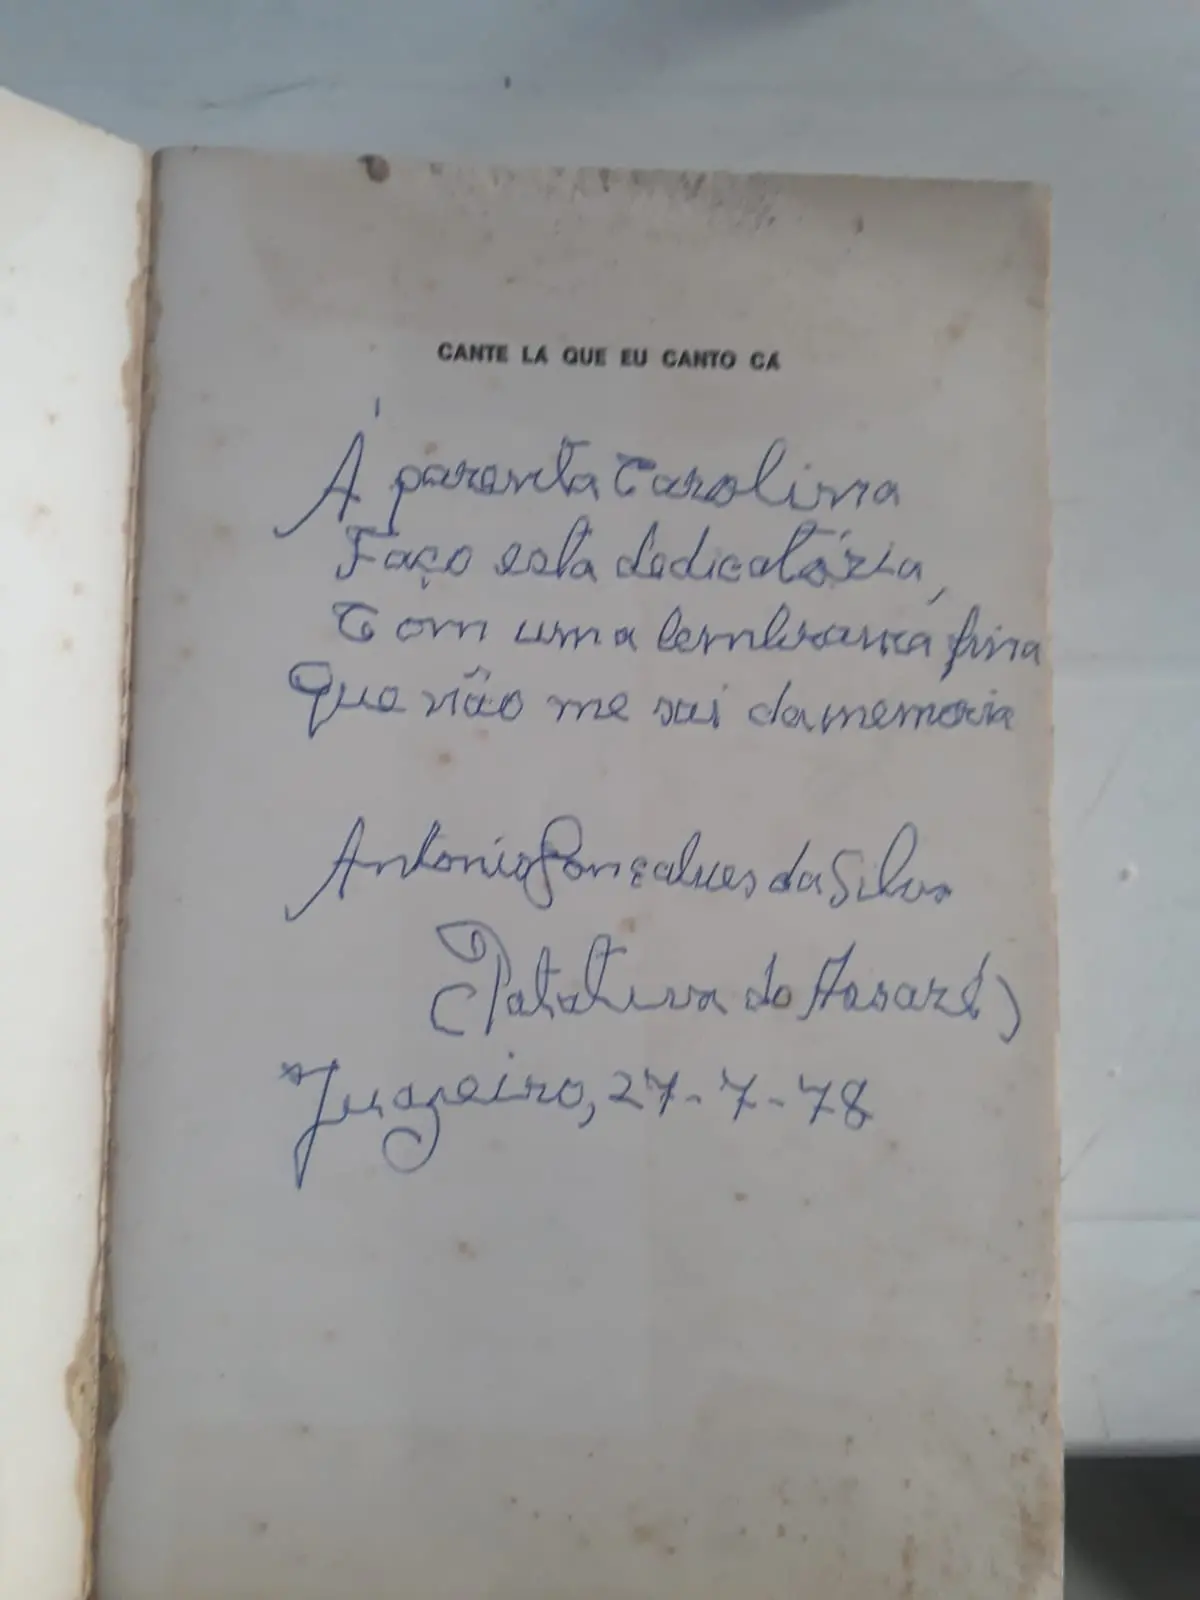 CANTE LÁ QUE EU CANTO CÁ
Á parenta Carolina
Faço esta dedicatória,
Com uma lembrança fina
Que não me sai da memoria
Antonio Gonçalves da Silva
(Patativa do Assaré)
Juazeiro, 27-7-78